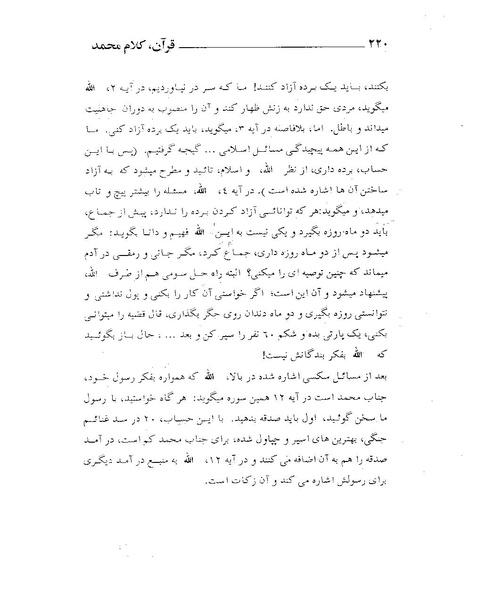 ۲۲۰ قرآن، کلام محمد
بکنند، باید یک برده آزاد کنند! ما که سر در نیاوردیم، در آیه ۲، الله
میگوید، مردی حق ندارد به زنش ظهار کند و آن را منصوب به دوران جاهلیت
میداند و باطل. اما، بلافاصله در آیه ۳، میگوید، باید یک برده آزاد کنی. ما
که از این همه پیچیدگی مسائل اسلامی ... گیجه گرفتیم. (پس با این
حساب، برده داری، از نظر الله، و اسلام، تائید و مطرح میشود که به آزاد
ساختن آن ها اشاره شده است). در آیه ۴، الله، مسئله را بیشتر پیچ و تاب
میدهد، و میگوید: هر که توانائی آزاد کردن برده را ندارد، پیش از جماع،
باید دو ماه روزه بگیرد و یکی نیست به این الله فهیم و دانا بگوید: مگر
میشود پس از دو ماه روزه داری، جماع کرد، مگر جانی و رمقی در آدم
میماند که چنین توصیه ای را میکنی؟ البته راه حل سومی هم از طرف الله،
پیشنهاد میشود و آن این است؛ اگر خواستی آن کار را بکنی و پول نداشتی و
نتوانستی روزه بگیری و دو ماه دندان روی جگر بگذاری، قال قضیه را میتوانی
بکنی، یک پارتی بده و شکم ۶۰ نفر را سیر کن و بعد ... ، حال باز بگوئید
که الله بفکر بندگانش نیست!
بعد از مسائل سکسی اشاره شده در بالا، الله که همواره بفکر رسول خود،
جناب محمد است در آیه ۱۲ همین سوره میگوید: هر گاه خواستید، با رسول
ما سخن گوئید، اول باید صدقه بدهید. با این حساب، ۲۰ در سد غنائم
جنگی، بهترین های اسیر و چپاول شده، برای جناب محمد کم است، در آمد
صدقه را هم به آن اضافه می کنند و در آیه ۱۲، الله به منبع در آمد دیگری
برای رسولش اشاره می کند و آن زکات است.